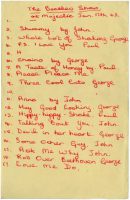 The Beatles Show
at Majestic Jan. 17th 63.
1 Chains by John
2 Whole Lot of Shaking George
3 P.S. I Love You Paul
4
5 Chains by George
6 A Taste of Honey by Paul
7 Please Please Me
8 Three Cool Cats George
9
10 Anna by John
11 Hey Good Looking George
12 Hippy hippy Shake Paul
13 Talking Bout You John
14 Devil in her Heart George
15 Some Other Guy John
16 Ask Me Why John
17 Roll Over Beethoven George
Love Me Do